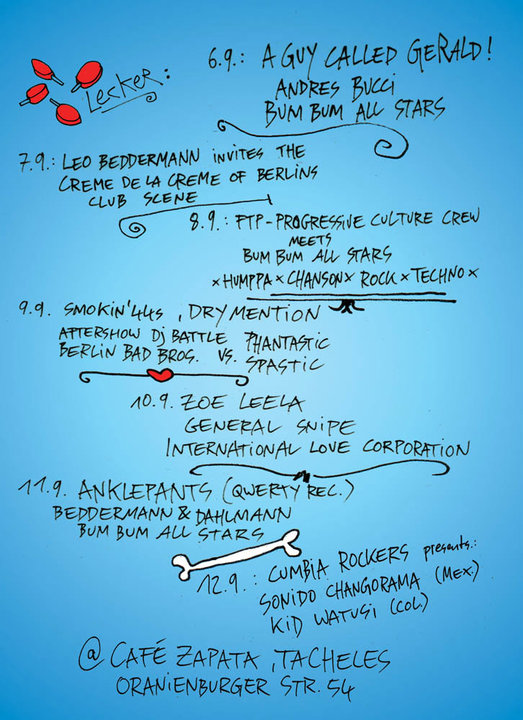 Lecker:
6.9.: A GUY CALLED GERALD!
ANDRES BUCCI
BUM BUM ALL STARS
7.9.: LEO BEDDERMANN invites THE
CREME DE LA CREME OF BERLINS
CLUB SCENE
8.9.: FTP-PROGRESSIVE CULTURE CREW
MEETS
BUM BUM ALL STARS
x HUMPPA x CHANSON x ROCK x TECHNO x
9.9. SMOKIN'44s , DRY MENTION
AFTERSHOW Dj BATTLE PHANTASTIC
BERLIN BAD BROS. VS. SPASTIC
10.9. ZOE LEELA
GENERAL SNIPE
INTERNATIONAL LOVE CORPORATION
11.9. ANKLEPANTS (QWERTY REC.)
BEDDERMANN & DAHLMANN
BUM BUM ALL STARS
12.9.: CUMBIA ROCKERS presents.:
SONIDO CHANGORAMA (MEX.)
KID WATUSI (COL.)
@ CAFÉ ZAPATA , TACHELES
ORANIENBURGER STR. 54